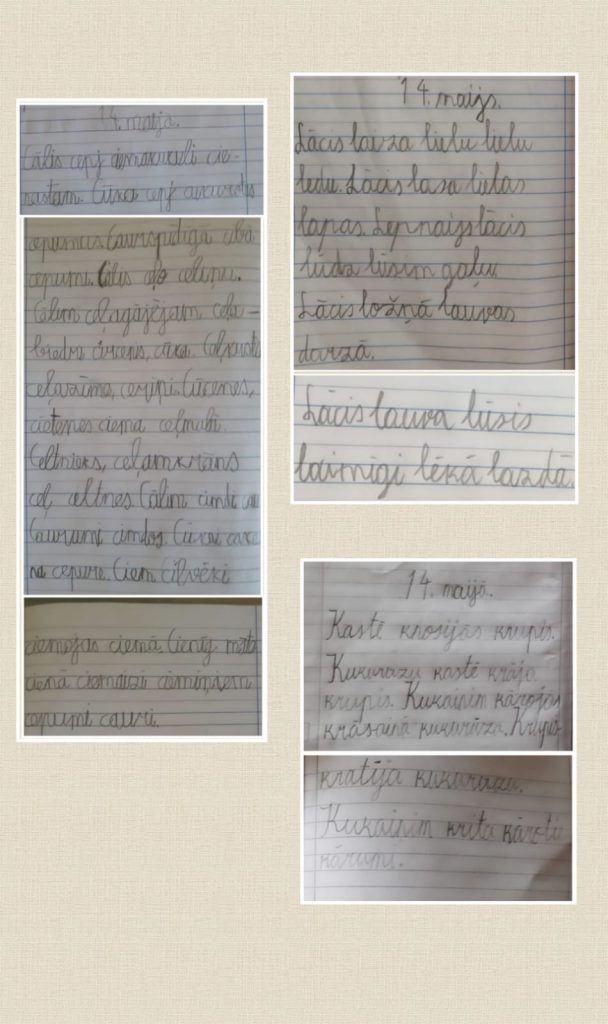 14. maijā.
Cālis cep ciemakukuli cie-
nastam. Cūka cep
cepumus. Caurspīdīgā cibā
cepumi. Cālis ceļ celiņu.
Cālim ceļagājējam ceļa-
biedri circenis, cūka. Ceļ
ceļazīme, ceriņi. Cūcenes,
cietenes ciema ceļmalā.
Celtnieks, ceļamkrāns
ceļ celtnes. Cālim cimdi cau
Caurumi cimdos. Cūkai caka
na cepure. Ciem cilvēki
ciemojas ciemā. Cienīg māte
cienā ciemiņiem
cepumi cauri.
14. maijs.
Lācis laiza lielu lielu
ledu. Lācis lasa lielas
lapas. Lepnais lācis
lūdz lūsim gaļu.
Lācis ložņā lauvas
dārzā.
Lācis lauva lūsis
laimīgi lēkā lazdā.
14. maijā.
Kastē krosījās krupis.
Kukurūzu kastē krāja
krupis. Kukainim kārojas
krāsainā kukurūza. Krupis
kratīja kukurūzu.
Kukainim krita
kārumi.